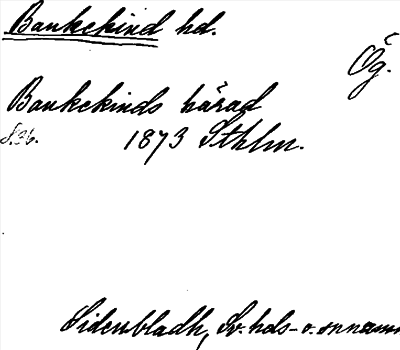 Bankekind hd.
Ög.
Bankekinds härad
s. 36. 1873 Sthlm.
Sidenbladh, Sv. hds- o. snnamn